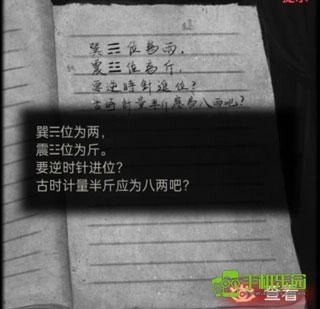 提示
巽☴位为两，
震☳位为斤，
要逆时针进位？
古时计量半斤应为八两吧？
巽☴位为两，
震☳位为斤。
要逆时针进位？
古时计量半斤应为八两吧？
手机乐园
查看